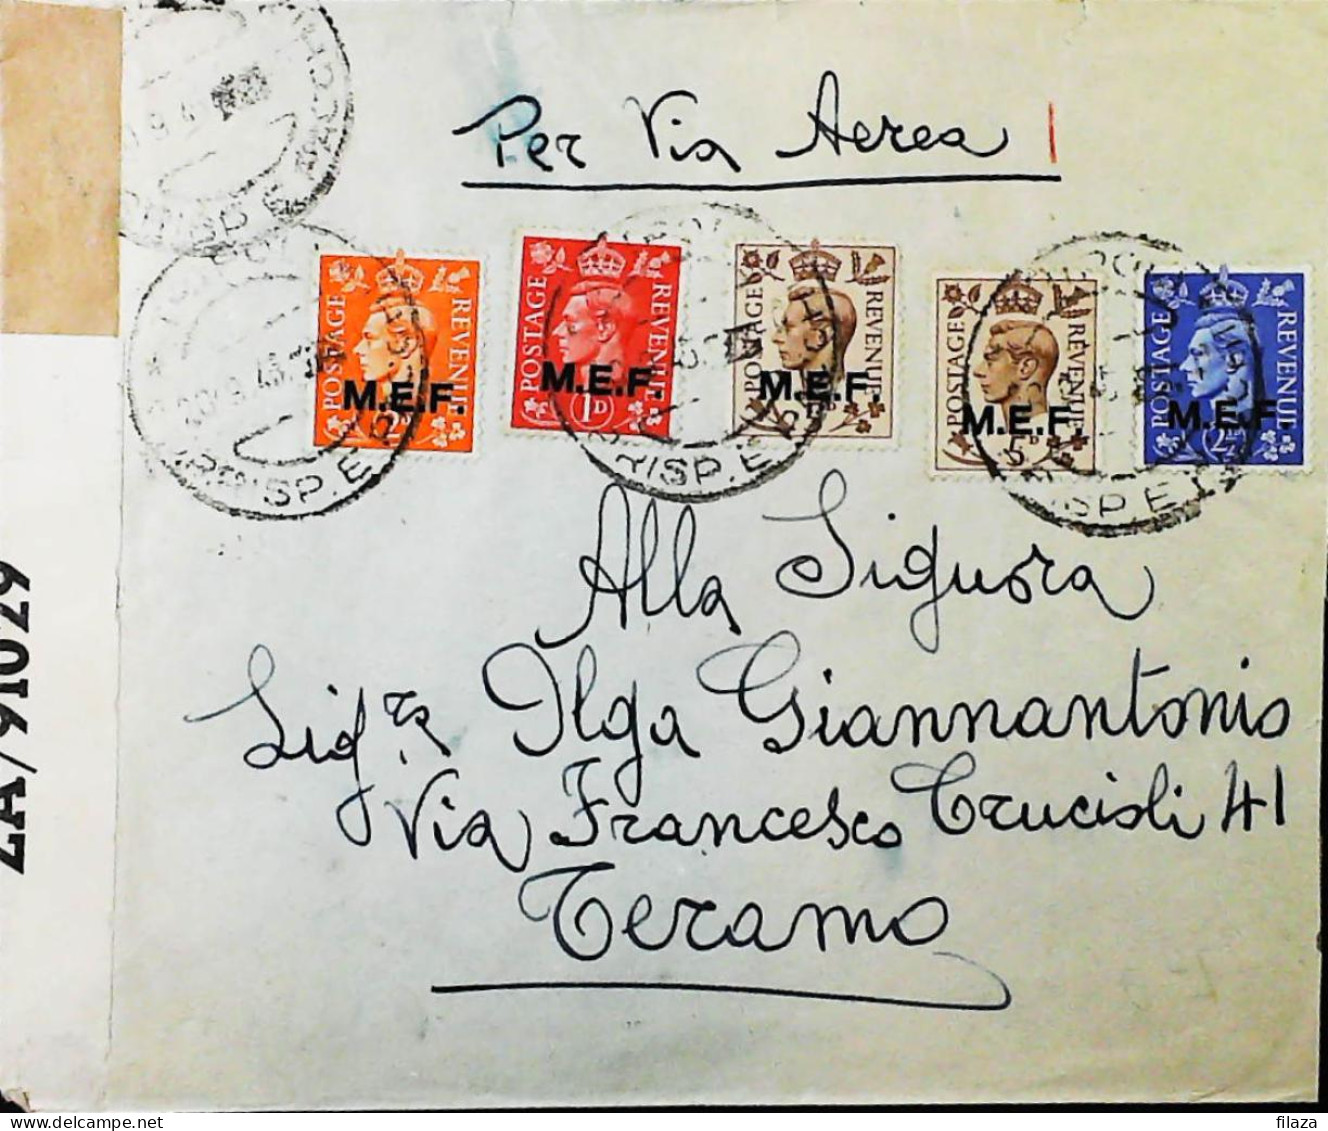 Per Via Aerea
POSTAGE REVENUE
M.E.F.
POSTAGE REVENUE
M.E.F.
1D
POSTAGE REVENUE
M.E.F.
POSTAGE REVENUE
M.E.F.
5D
POSTAGE REVENUE
M.E.F.
Alla Signora
Sigra Ilga Giannantonio
Via Francesco Crucioli 41
Teramo
ZA/91029
© Delcampe
filaza